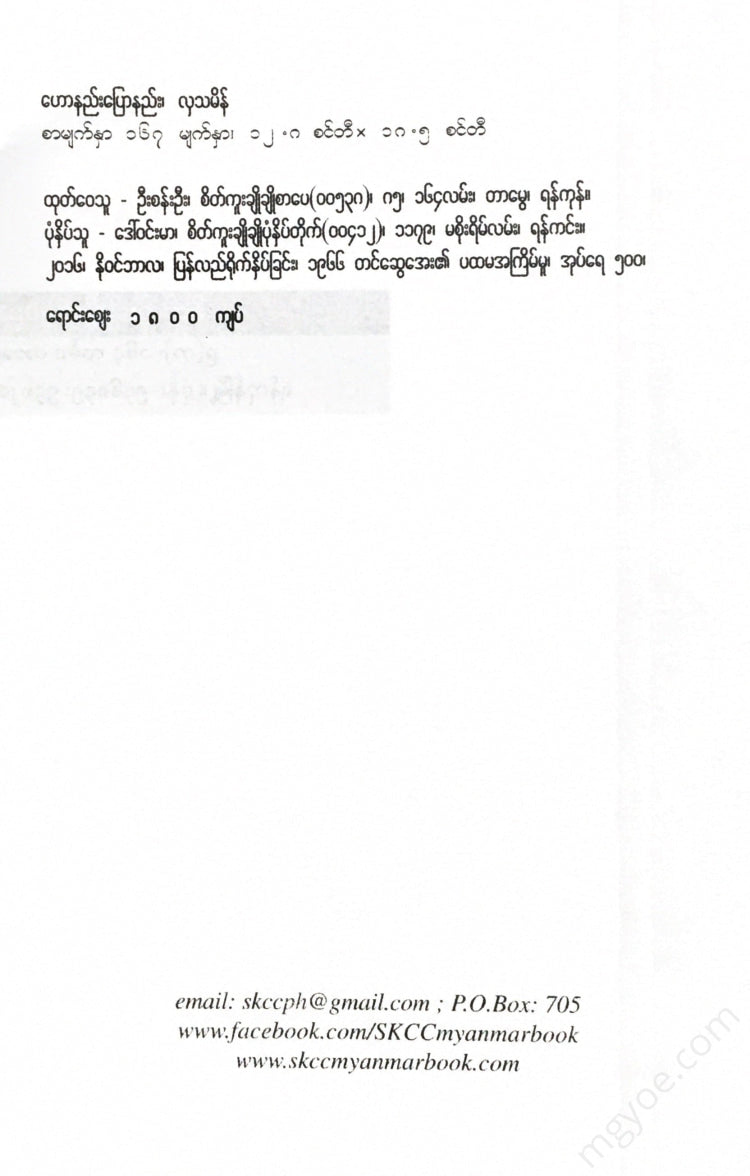 ဟောနည်းပြောနည်း၊ လှသမိန်
စာမျက်နှာ ၁၆၇ မျက်နှာ၊ ၁၂.၈ စင်တီ× ၁၈.၅ စင်တီ
ထုတ်ဝေသူ - ဦးစန်းဦး၊ စိတ်ကူးချိုချိုစာပေ(၀၀၅၃၈)၊ ၈၅၊ ၁၆၄လမ်း၊ တာမွေ၊ ရန်ကုန်။
ပုံနှိပ်သူ - ဒေါ်ဝင်းမာ၊ စိတ်ကူးချိုချိုပုံနှိပ်တိုက်(၀၀၄၁၂)၊ ၁၁၇၉၊ မစိုးရိမ်လမ်း၊ ရန်ကင်း။
၂၀၁၆၊ နိုဝင်ဘာလ၊ ပြန်လည်ရိုက်နှိပ်ခြင်း၊ ၁၉၆၆ တင်ဆွေအေး၏ ပထမအကြိမ်မူ၊ အုပ်ရေ ၅၀၀၊
ရောင်းဈေး ၁ ၈ ၀ ၀ ကျပ်
email: skccph@gmail.com ; P.O.Box: 705
www.facebook.com/SKCCmyanmarbook
www.skccmyanmarbook.com
mgyoe.com